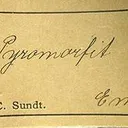 Pyromorfit
C. Sundt. Em